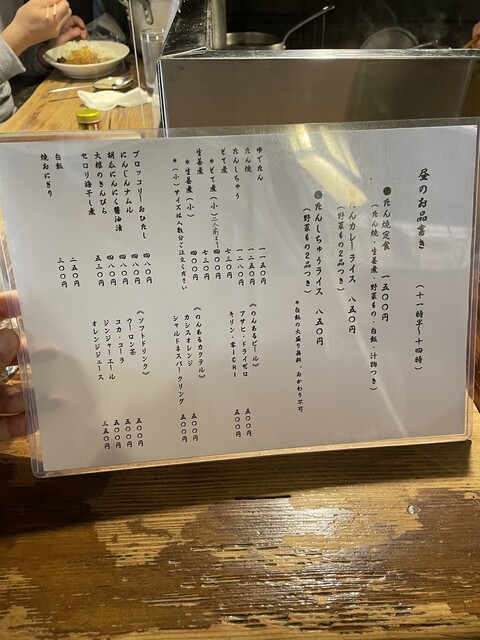 昼のお品書き　（十一時半〜十四時）
●たん焼定食　一五〇〇円
（たん焼・生姜煮・野菜もの・白飯・汁物つき）
たんカレーライス　八五〇円
（野菜もの2品つき）
●たんしちゅうライス　八五〇円
（野菜もの2品つき）
＊白飯の大盛り無料、おかわり不可
ゆでたん　一一五〇円
たん焼
たんしちゅう
どて煮　七三〇円
＊どて煮（小）二人前より
生姜煮　七三〇円
＊生姜煮（小）　四〇〇円
＊（小）サイズは人数分ご注文ください
ブロッコリーおひたし　四八〇円
にんじんナムル　四八〇円
胡瓜にんにく醤油漬　四八〇円
大根のきんぴら　四八〇円
セロリ梅干し煮　五三〇円
白飯　二五〇円
焼おにぎり　三〇〇円
《のんあるビール》
アサヒ・ドライゼロ　五〇〇円
キリン・零ICHI　五〇〇円
《のんあるカクテル》
カシスオレンジ　五〇〇円
シャルドネスパークリング　五〇〇円
《ソフトドリンク》
ウーロン茶　五〇〇円
コカ・コーラ　五〇〇円
ジンジャーエール　五〇〇円
オレンジジュース　三五〇円